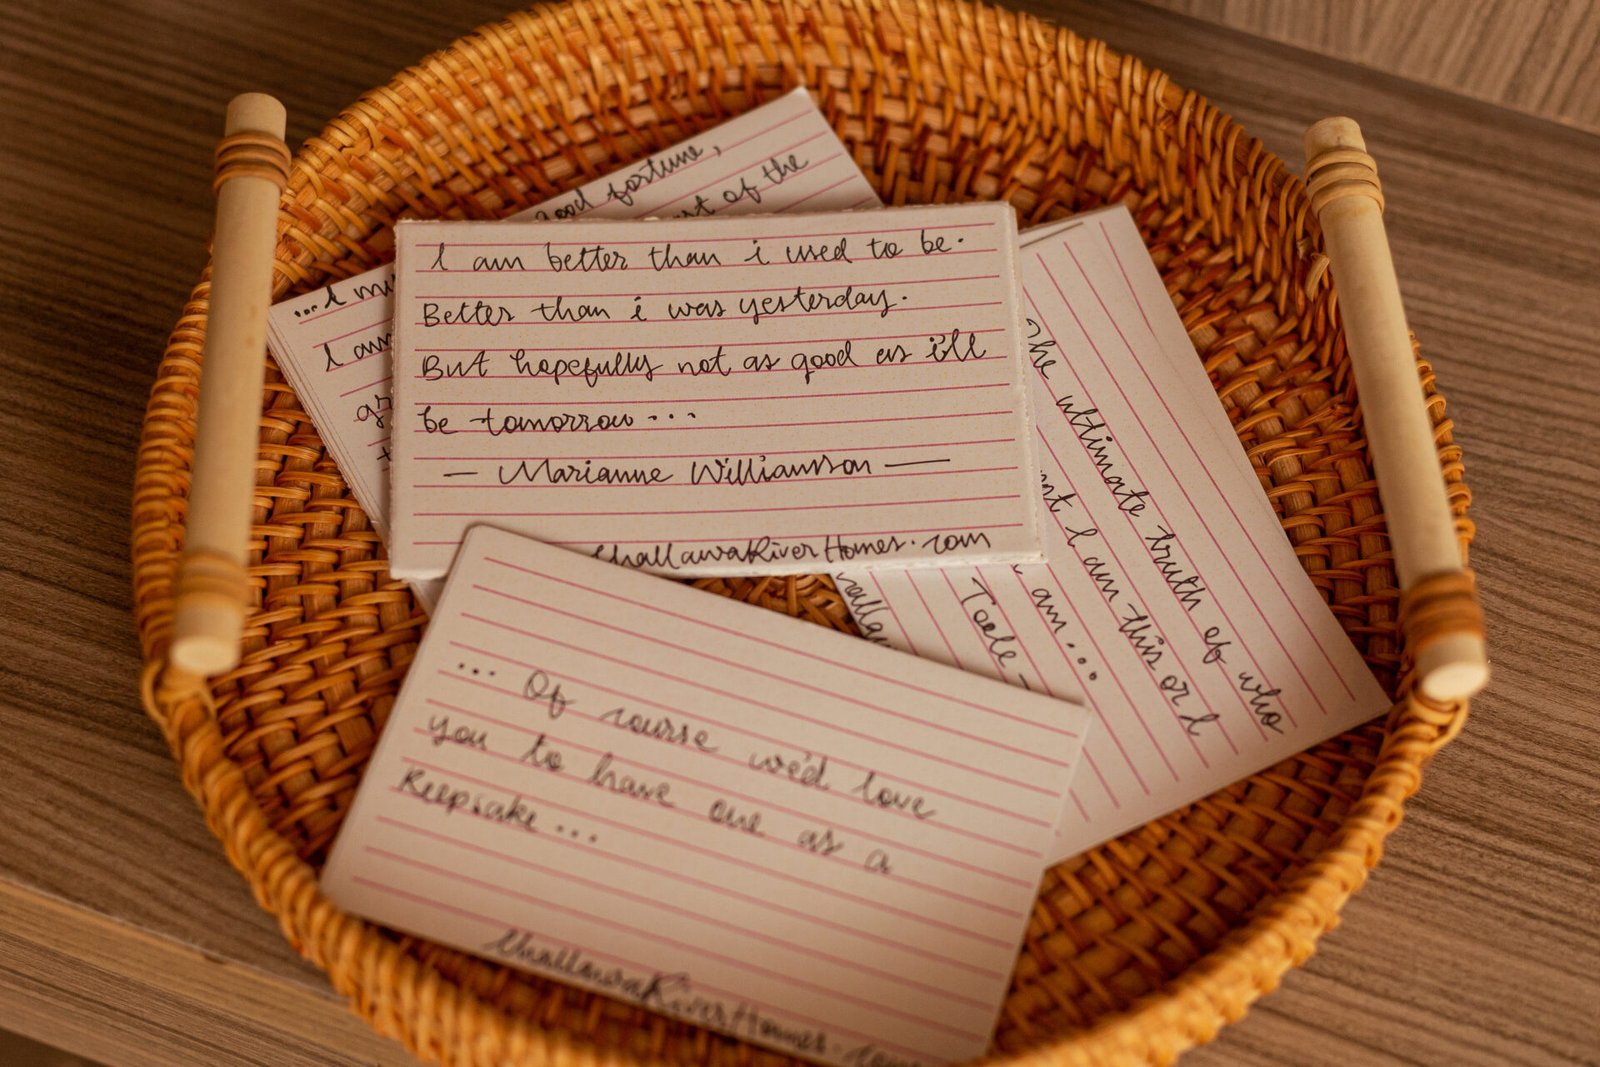 good fortune,
of the
...I
I am
I am better than i used to be.
Better than i was yesterday.
But hopefully not as good as i'll
be tomorrow...
— Marianne Williamson —
ChallawaRiverHomes.com
The ultimate truth of who
I am this or I
am...
Tolle —
... Of course we'd love
you to have one as a
Keepsake...
ChallawaRiverHomes.com